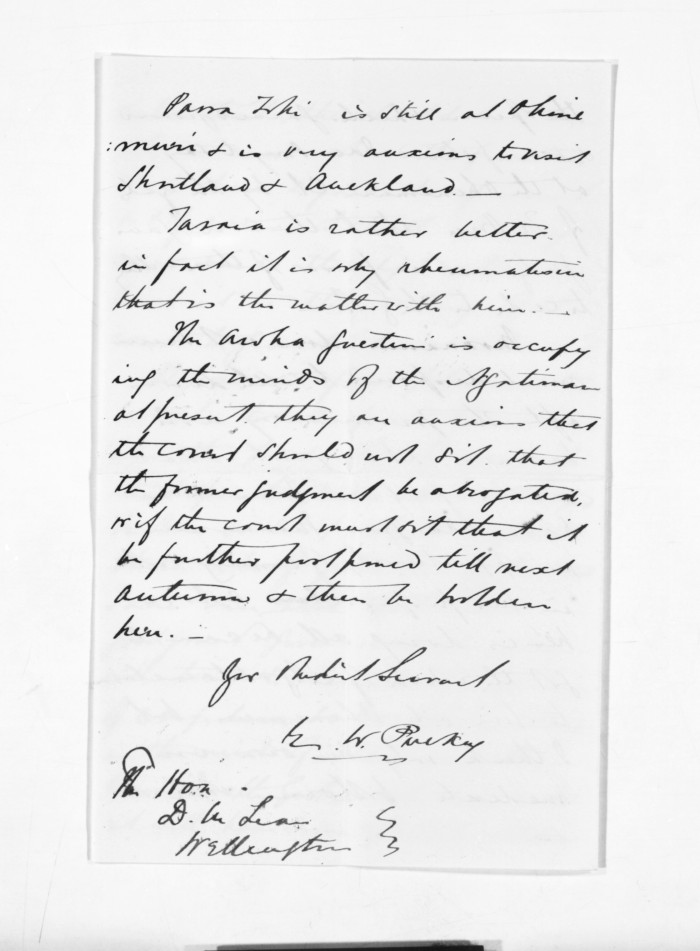 Paora Tiki is still at Ohine
:muri & is very anxious to visit
Shortland & Auckland. _
Taraia is rather better.
in fact it is only rheumatism
that is the matter with him. _
The Aroha question is occupy
ing the minds of the Ngatimaru
at present they are anxious that
the court should not sit. that
the former judgment be abrogated,
or if the court must sit that it
be further postponed till next
autumn & then be holden
here. _
Yr Obedient Servant
E. W. Puckey
The Hon.
D. McLean
Wellington